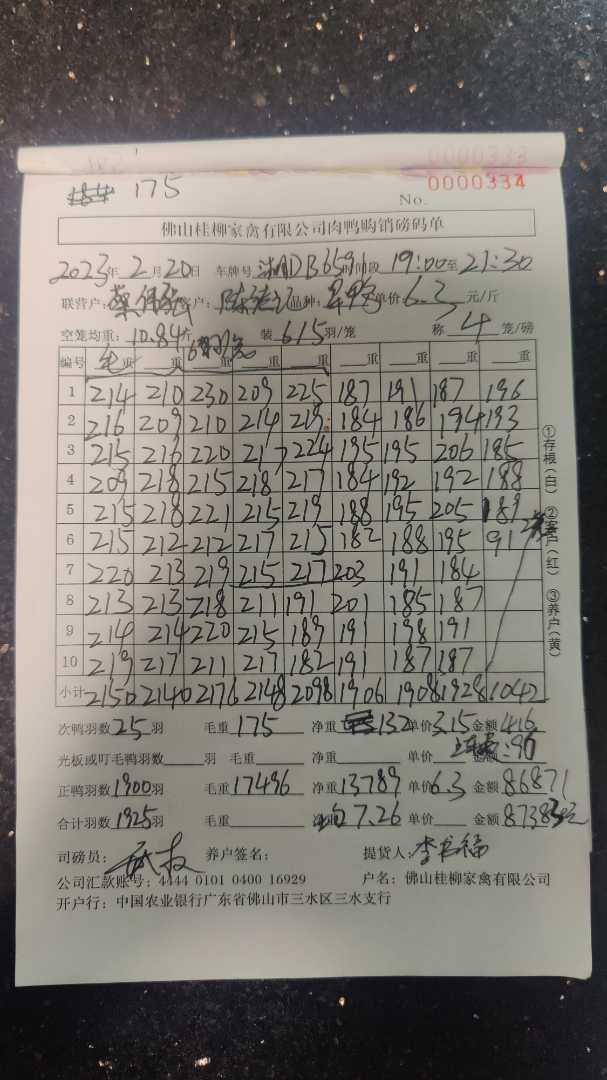 175
0000333
No. 0000334
佛山桂柳家禽有限公司肉鸭购销磅码单
2023年2月20日 车牌号 湘DB6591 时间段 19:00至21:30
联营户: 客户: 品种: 单价6.3元/斤
空笼均重:10.84斤 装615羽/笼 称4笼/磅
编号 毛重 重 重 重 重 重 重 重 重
1 214 210 230 209 225 187 191 187 196
2 216 209 210 214 219 184 186 194 193
3 215 216 220 217 224 195 195 206 185
4 209 218 215 218 217 184 192 192 188
5 215 218 221 215 219 188 195 205 189
6 215 212 212 217 215 182 188 195 91
7 220 213 219 215 217 203 191 184
8 213 213 218 211 191 201 185 187
9 214 214 220 215 189 191 198 191
10 219 217 211 217 182 191 187 187
小计 2150 2140 2176 2148 2098 1906 1908 1928 1042
①存根(白) ②客户(红) ③养户(黄)
次鸭羽数25羽 毛重175 净重132 单价3.15 金额416
光板或叮毛鸭羽数 羽 毛重 净重 单价 金额:90
正鸭羽数1900羽 毛重17496 净重13789 单价6.3 金额86871
合计羽数1925羽 毛重 均7.26 单价 金额87383元
司磅员: 养户签名: 提货人:
公司汇款账号: 4444 0101 0400 16929 户名: 佛山桂柳家禽有限公司
开户行: 中国农业银行广东省佛山市三水区三水支行